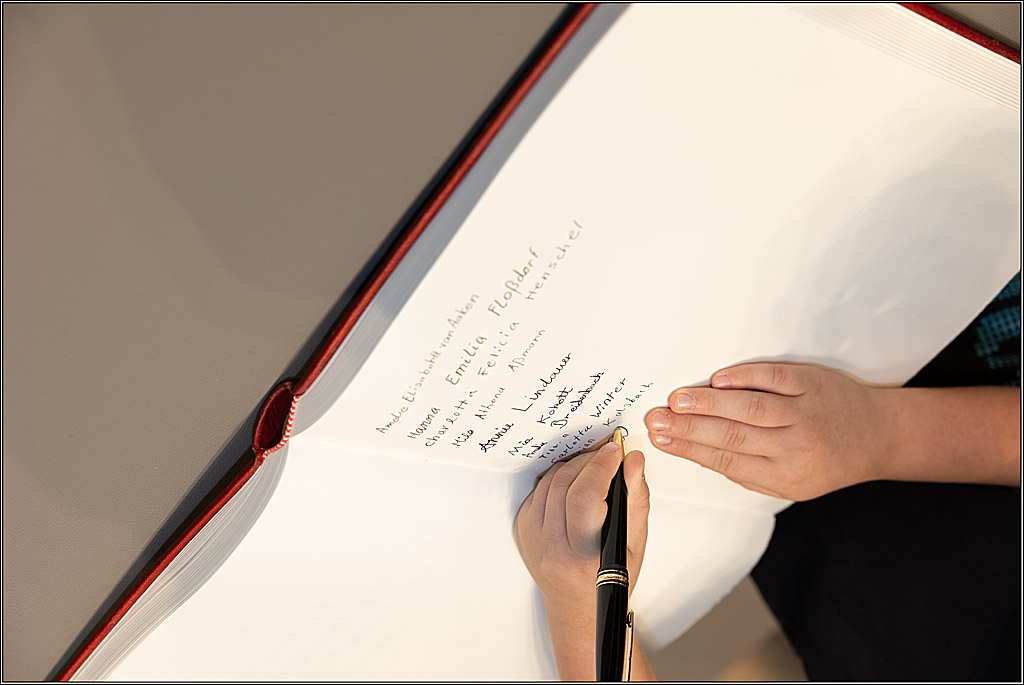 Amelie Elisabeth van Aaken
Hanna Emilia Floßdorf
Charlotta Felicia Henschel
Milo Athena Aßmann
Annie Lindauer
Mia Kohott
Breidenbach
Carlotta Winter
Kalsbach